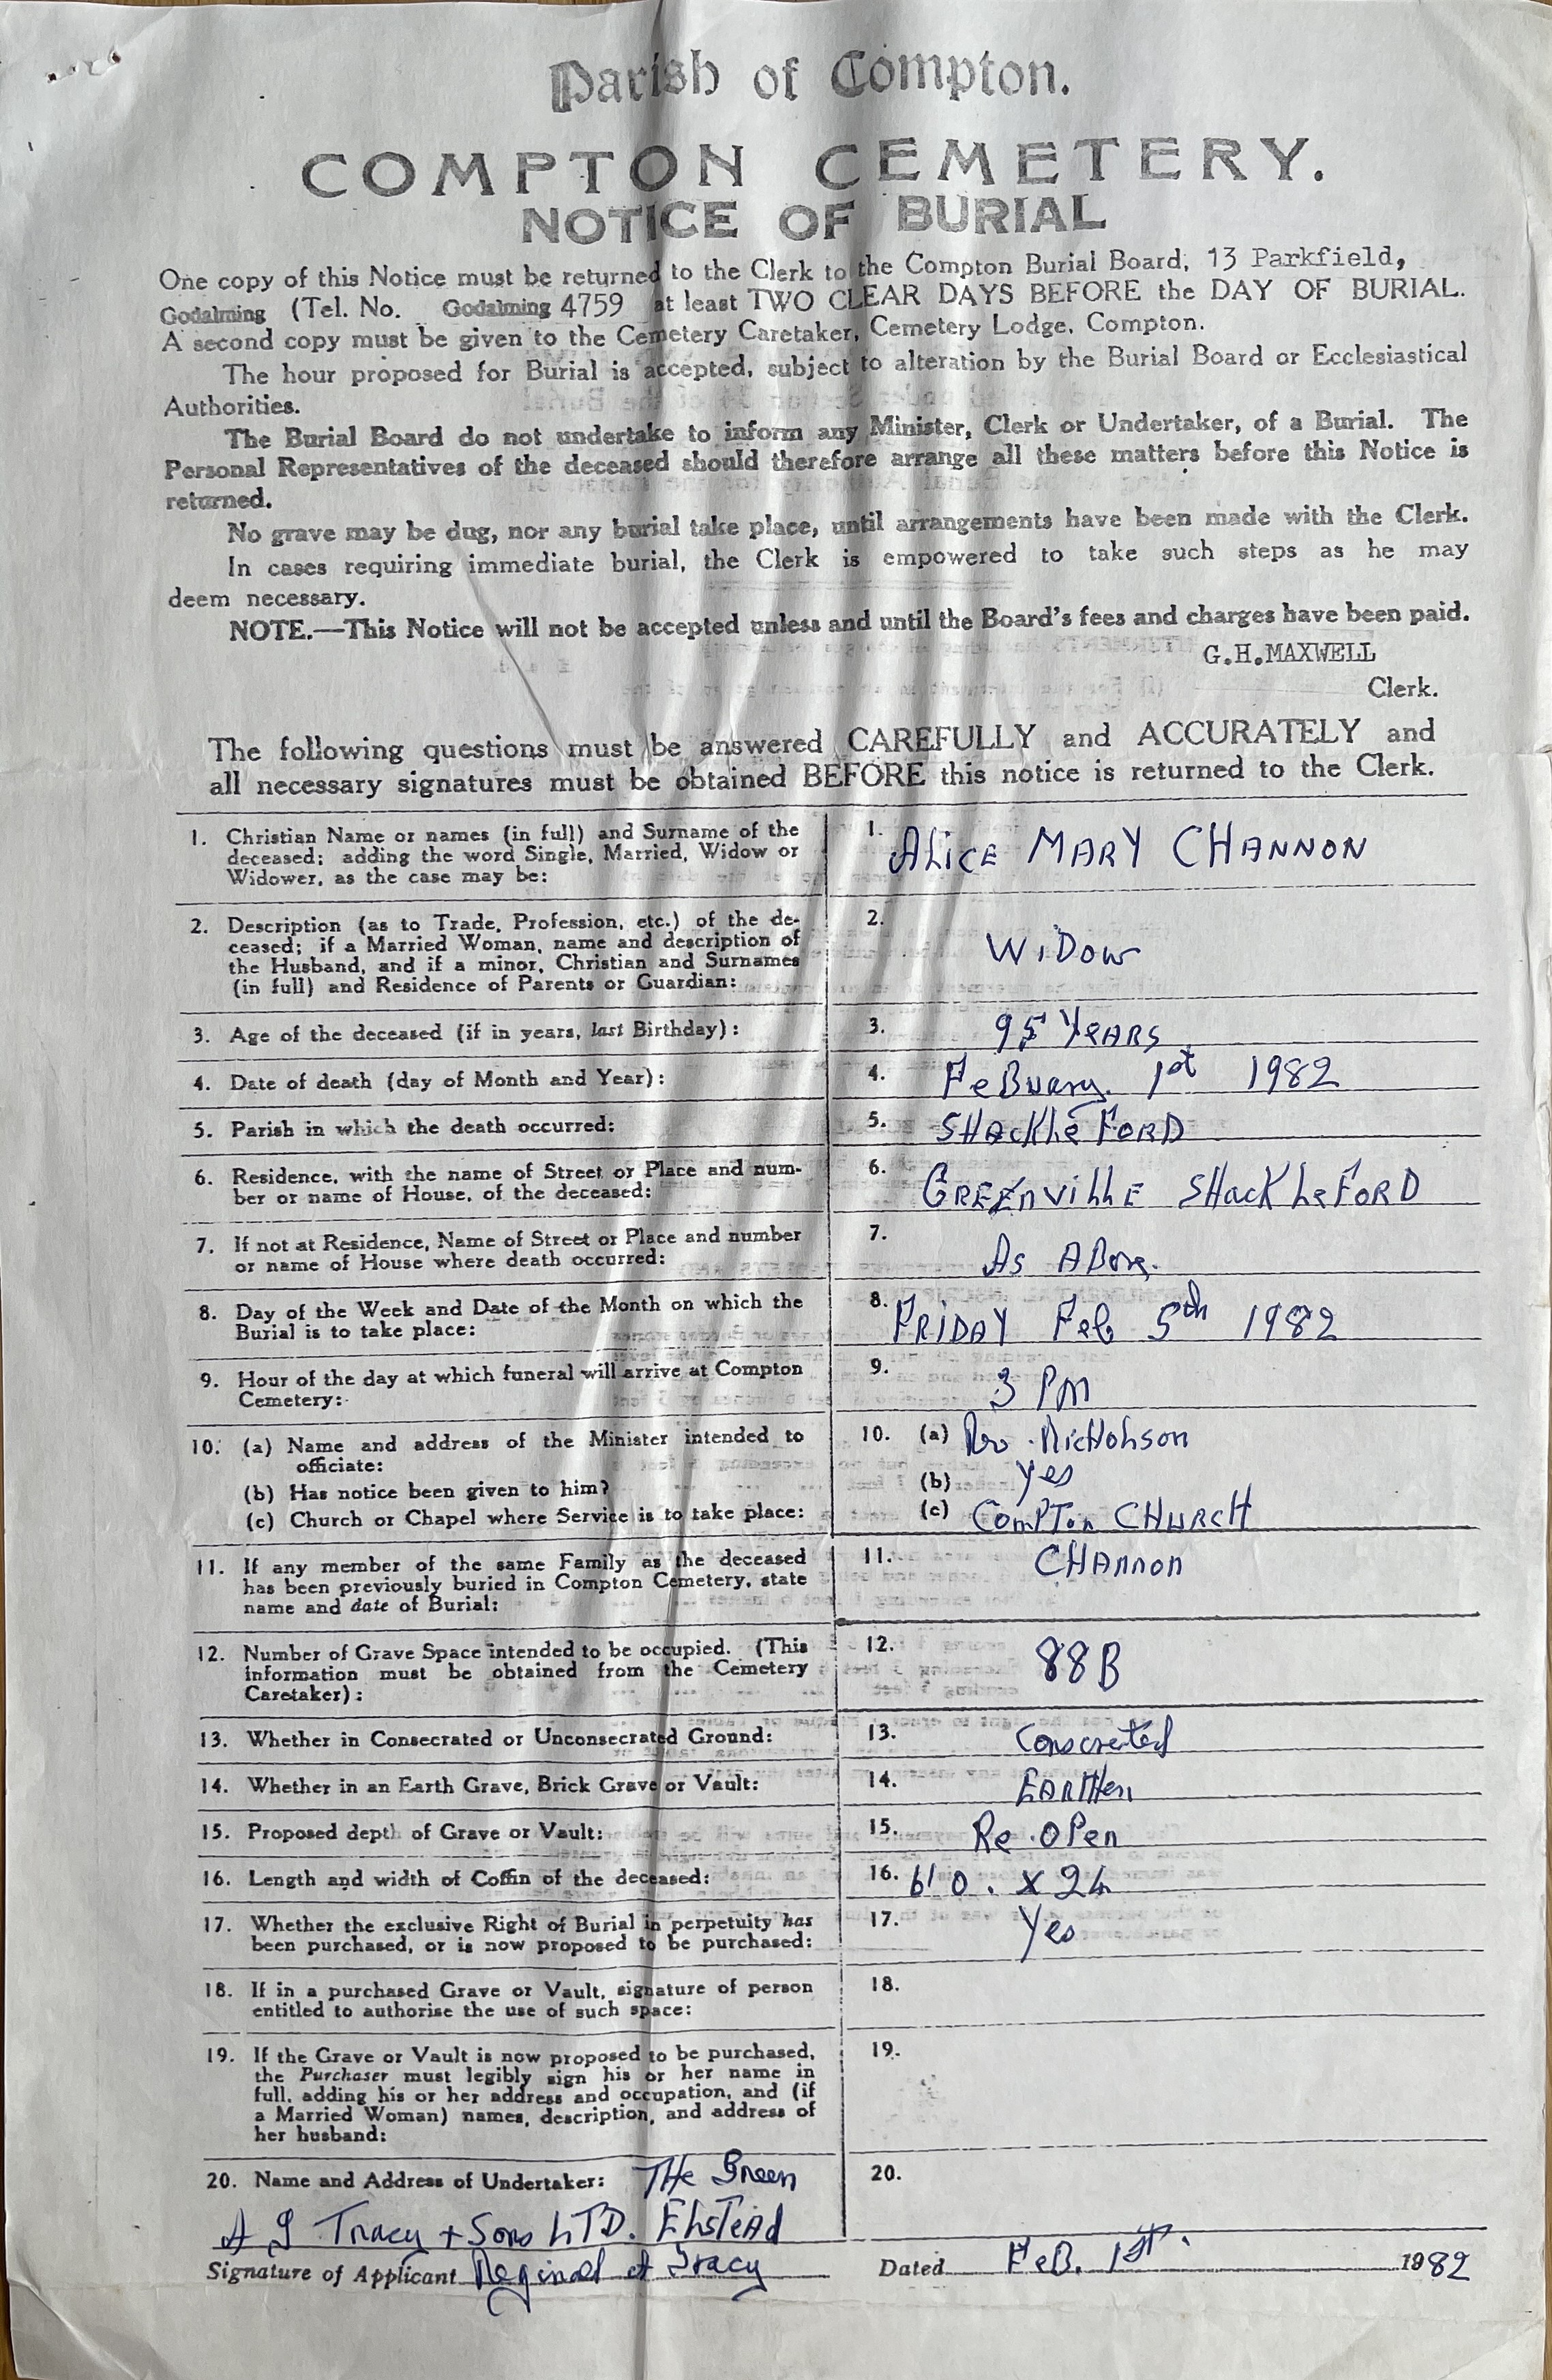 Parish of Compton.
COMPTON CEMETERY.
NOTICE OF BURIAL
One copy of this Notice must be returned to the Clerk to the Compton Burial Board, 13 Parkfield,
Godalming (Tel. No. Godalming 4759 at least TWO CLEAR DAYS BEFORE the DAY OF BURIAL.
A second copy must be given to the Cemetery Caretaker, Cemetery Lodge, Compton.
The hour proposed for Burial is accepted, subject to alteration by the Burial Board or Ecclesiastical
Authorities.
The Burial Board do not undertake to inform any Minister, Clerk or Undertaker, of a Burial. The
Personal Representatives of the deceased should therefore arrange all these matters before this Notice is
returned.
No grave may be dug, nor any burial take place, until arrangements have been made with the Clerk.
In cases requiring immediate burial, the Clerk is empowered to take such steps as he may
deem necessary.
NOTE.—This Notice will not be accepted unless and until the Board's fees and charges have been paid.
G.H.MAXWELL
Clerk.
The following questions must be answered CAREFULLY and ACCURATELY and
all necessary signatures must be obtained BEFORE this notice is returned to the Clerk.
1. Christian Name or names (in full) and Surname of the
deceased; adding the word Single, Married, Widow or
Widower, as the case may be:
1. ALICE MARY CHANNON
2. Description (as to Trade, Profession, etc.) of the de-
ceased; if a Married Woman, name and description of
the Husband, and if a minor, Christian and Surnames
(in full) and Residence of Parents or Guardian:
2. WIDOW
3. Age of the deceased (if in years, last Birthday):
3. 95 YeARS
4. Date of death (day of Month and Year):
4. FeBuary. 1st 1982
5. Parish in which the death occurred:
5. SHAckLeFORD
6. Residence, with the name of Street or Place and num-
ber or name of House, of the deceased:
6. GREEnviLLE SHacKLeFoRD
7. If not at Residence, Name of Street or Place and number
or name of House where death occurred:
7. As ABove.
8. Day of the Week and Date of the Month on which the
Burial is to take place:
8. FRIDAY Feb 5th 1982
9. Hour of the day at which funeral will arrive at Compton
Cemetery:
9. 3 PM
10. (a) Name and address of the Minister intended to
officiate:
(b) Has notice been given to him?
(c) Church or Chapel where Service is to take place:
10. (a) Rev. NicHoLson
(b) yes
(c) ComPTon CHURCH
11. If any member of the same Family as the deceased
has been previously buried in Compton Cemetery, state
name and date of Burial:
11. CHAnnon
12. Number of Grave Space intended to be occupied. (This
information must be obtained from the Cemetery
Caretaker):
12. 88B
13. Whether in Consecrated or Unconsecrated Ground:
13. Conscrated
14. Whether in an Earth Grave, Brick Grave or Vault:
14. EARTHen
15. Proposed depth of Grave or Vault:
15. Re.OPen
16. Length and width of Coffin of the deceased:
16. 6' 0. x 24
17. Whether the exclusive Right of Burial in perpetuity has
been purchased, or is now proposed to be purchased:
17. Yes
18. If in a purchased Grave or Vault, signature of person
entitled to authorise the use of such space:
18.
19. If the Grave or Vault is now proposed to be purchased,
the Purchaser must legibly sign his or her name in
full, adding his or her address and occupation, and (if
a Married Woman) names, description, and address of
her husband:
19.
20. Name and Address of Undertaker: THe Green
A J Tracy + Sons LTD. ELSTeAD
20.
Signature of Applicant Reginald A Tracy
Dated FeB. 1st. 1982